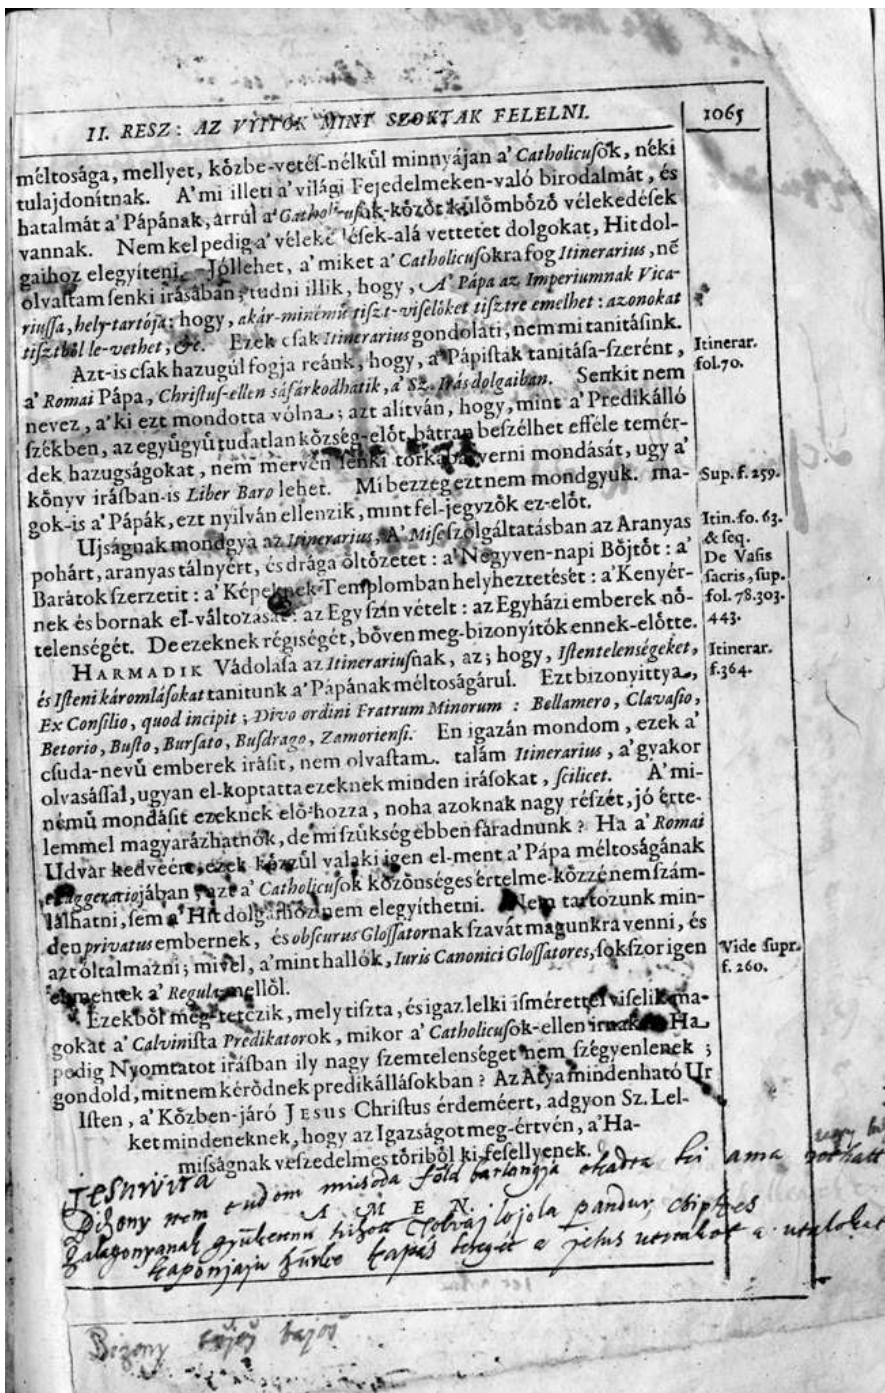 II. RESZ: AZ VYITOK MINT SZOKTAK FELELNI.
1065
méltosága, mellyet, kȯzbe-vetés-nélkűl minnyájan a' Catholicusok, néki
tulajdonítnak. A' mi illeti a' világi Fejedelmeken-való birodalmát, és
hatalmát a' Pápának, arrúl a' Catholicusok-kȯzȯt kűlȯmbȯzȯ vélekedések
vannak. Nem kel pedig a' vélekedések-alá vettetet dolgokat, Hit dol-
gaihoz elegyíteni. Jóllehet, a' miket a' Catholicusokra fog Itinerarius, nē
olvastam senki irásában; tudni illik, hogy, A' Pápa az Imperiumnak Vica-
riussa, hely-tartója: hogy, akár-minémű tiszt-viselőket tisztre emelhet: azonokat
tisztbȯl le-vethet, &c. Ezek csak Itinerarius gondolati, nem mi tanitásink.
Azt-is csak hazugúl fogja reánk, hogy, a' Pápisták tanitása-szerént,
a' Romai Pápa, Christus-ellen sáfárkodhatik, a' Sz. Irás dolgaiban. Senkit nem
nevez, a' ki ezt mondotta vólna; azt alítván, hogy, mint a' Predikálló
székben, az egyűgyű tudatlan kȯzség-elȯt bátran beszélhet efféle temér-
dek hazugságokat, nem mervén senki torkába verni mondását, ugy a'
kȯnyv irásban-is Liber Baro lehet. Mi bezzeg ezt nem mondgyuk. ma-
gok-is a' Pápák, ezt nyilván ellenzik, mint fel-jegyzȯk ez-elȯt.
Ujságnak mondgya az Itinerarius, A' Mise szolgáltatásban az Aranyas
pohárt, aranyas tálnyért, és drága ȯltȯzetet: a' Negyven-napi Bȯjtȯt: a'
Barátok szerzetit: a' Képeknek Templomban helyheztetését: a' Kenyér-
nek és bornak el-változását: az Egy szín vételt: az Egyházi emberek nȯ-
telenségét. De ezeknek régiségét, bȯven meg-bizonyítók ennek-elȯtte.
HARMADIK Vádolása az Itinerariusnak, az; hogy, Istentelenségeket,
és Isteni káromlásokat tanitunk a' Pápának méltoságárul. Ezt bizonyittya,
Ex Consilio, quod incipit; Divo ordini Fratrum Minorum: Bellamero, Clavasio,
Betorio, Busto, Bursato, Busdrago, Zamoriensi. En igazán mondom, ezek a'
csuda-nevű emberek irásit, nem olvastam. talám Itinerarius, a' gyakor
olvasással, ugyan el-koptatta ezeknek minden irásokat, scilicet. A' mi-
némű mondásit ezeknek elȯ-hozza, noha azoknak nagy részét, jó érte-
lemmel magyarázhatnók, de mi szűkség ebben fáradnunk? Ha a' Romai
Udvar kedvéért, ezek kȯzzűl valaki igen el-ment a' Pápa méltoságának
exaggeratiojában, azt a' Catholicusok kȯzȯnséges értelme-kȯzzé nem szám-
lálhatni, sem a' Hit dolgaihoz nem elegyíthetni. Nem tartozunk min-
den privatus embernek, és obscurus Glossatornak szavát magunkra venni, és
azt óltalmazni; mivel, a' mint hallók, Iuris Canonici Glossatores, sokszor igen
el-mentek a' Regula mellȯl.
Ezekbȯl meg-tetczik, mely tiszta, és igaz lelki ismérettel viselik ma-
gokat a' Calvinista Predikatorok, mikor a' Catholicusok-ellen irnak. Ha
pedig Nyomtatot irásban ily nagy szemtelenséget nem szégyenlenek;
gondold, mit nem kérȯdnek predikállásokban? Az Atya mindenható Ur
Isten, a' Kȯzben-járó JESUS Christus érdeméert, adgyon Sz. Lel-
ket mindeneknek, hogy az Igazságot meg-értvén, a' Ha-
misságnak veszedelmes tȯribȯl ki-fesellyenek.
A M E N.
Itinerar.
fol. 70.
Sup. f. 259.
Itin. fo. 63.
& seq.
De Vasis
sacris, sup.
fol. 78. 303.
443.
Itinerar.
f. 364.
Vide supr.
f. 260.
Jesuvita
Bizony nem tudom misoda föld barlangja okadta ki ama
Tolvaj lojola pandur
a jesus
Bizony bajos